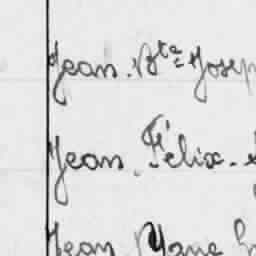 Jean. Bte= Josep
Jean. Félix.
Jean Marie